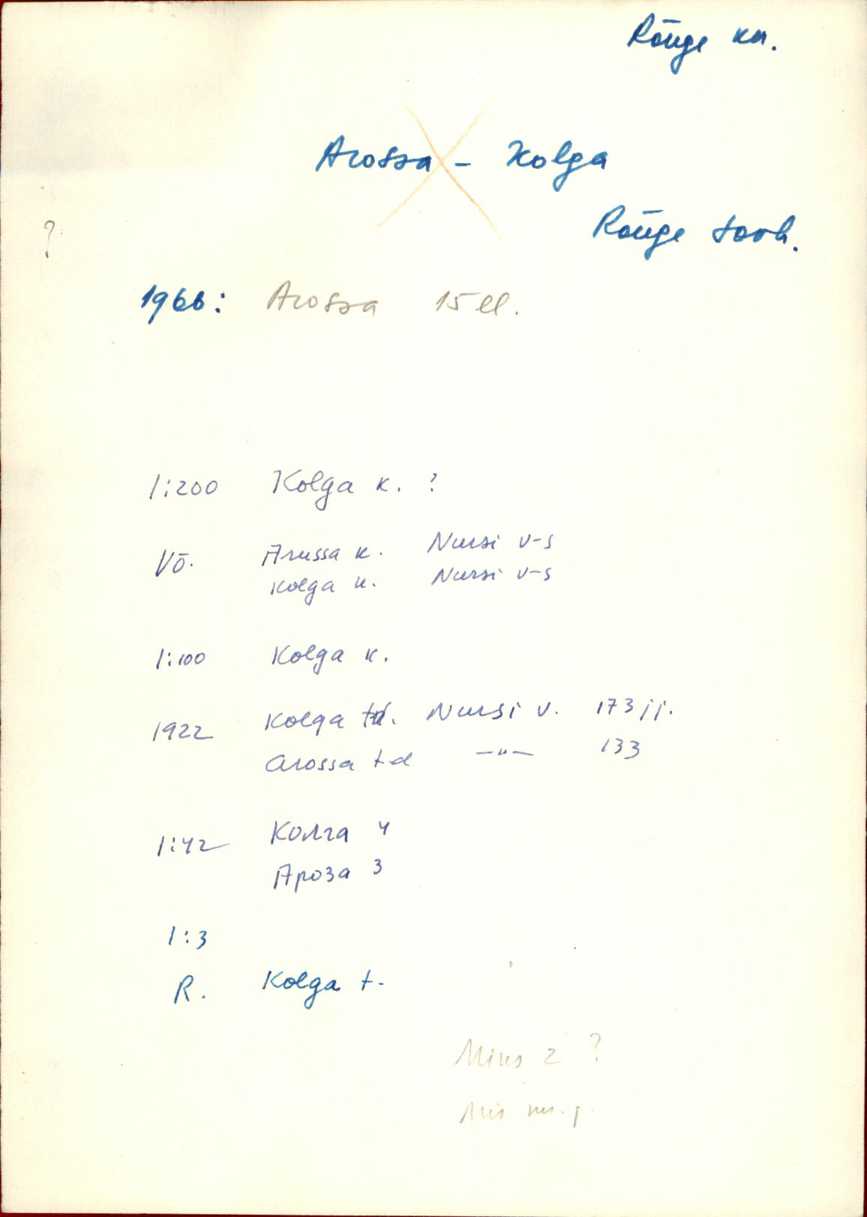 Rõuge kn.
Arossa - Kolga
Rõuge
?
1966: Arossa 15 el.
1:200 Kolga k. ?
Võ. Arussa k. Nursi v-s
Kolga k. Nursi v-s
1:100 Kolga k.
1922 Kolga td. Nursi v. 173 jj.
Arossa td —"— 133
1:42 Колга 4
Ароза 3
1:3
R. Kolga t.
Miks 2 ?
Mis